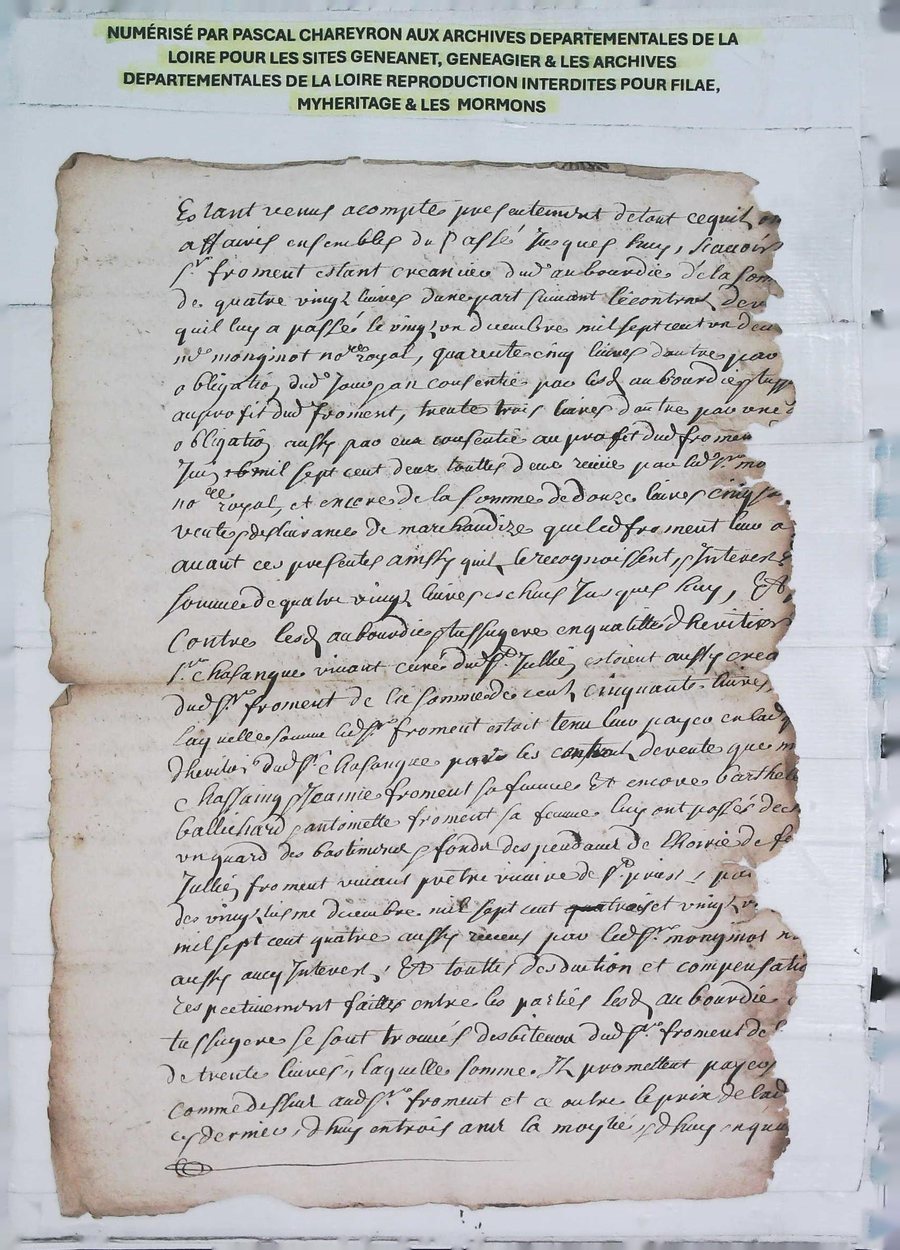 NUMÉRISÉ PAR PASCAL CHAREYRON AUX ARCHIVES DEPARTEMENTALES DE LA
LOIRE POUR LES SITES GENEANET, GENEAGIER & LES ARCHIVES
DEPARTEMENTALES DE LA LOIRE REPRODUCTION INTERDITES POUR FILAE,
MYHERITAGE & LES MORMONS
Estant venus a compte presentement de tout ce quil on
affaires ensembles du passé Jusques huy, scauoir
sr froment estant creancier dud aubourdie de la som
de quatre vingt liures dune part suiuant le contract de
quil luy a passé le vingt un decembre mil sept cent un
me monginot nore royal, quarente cinq liures dautre par
obligatio dud Jour consentie par lesd aubourdie
au profit dud froment, trente trois liures dautre par une
obligatio aussy par eux consentie au profit dud fromen
mil sept cent deux touttes deux par led sr mo
nore royal, et encore de la somme de douze liures cinq
ventes desliurances de marchandize que led froment leur a
auant ces presentes ainsy quil le recognoissent, Interest
somme de quatre vingt liures escheus Jusques huy, Et
Contre lesd aubourdie tussugere en qualitté dheritier
sr chasangue viuant curé dud st Jullie estoient aussy crea
dud sr froment de la somme de cent cinquante liures
laquelle somme led sr froment estoit tenu leur payer en lad
dud sr chasangue par les contract de vente que
chassaing Jeanne froment sa femme Et encore barthel
antoinette froment sa femme luy ont passés des
un quard des bastiments fonds despendants de lhoirie de fe
Jullie froment viuant prêtre vicaire de st priest
des decembre mil sept cent quatre et vingt
mil sept cent quatre aussy receus par led sr monginot n
aussy aucq Interest, Et touttes desduction et compensatio
respectiuement faittes entre les parties lesd aubourdie
tussugere se sont trouués desbiteurs dud sr froment de l
de trente liures, laquelle somme Il promettent payer
comme dessus aud sr froment et ce outre le prix de lad
dhuy en trois ans la moytié, dhuy en qua